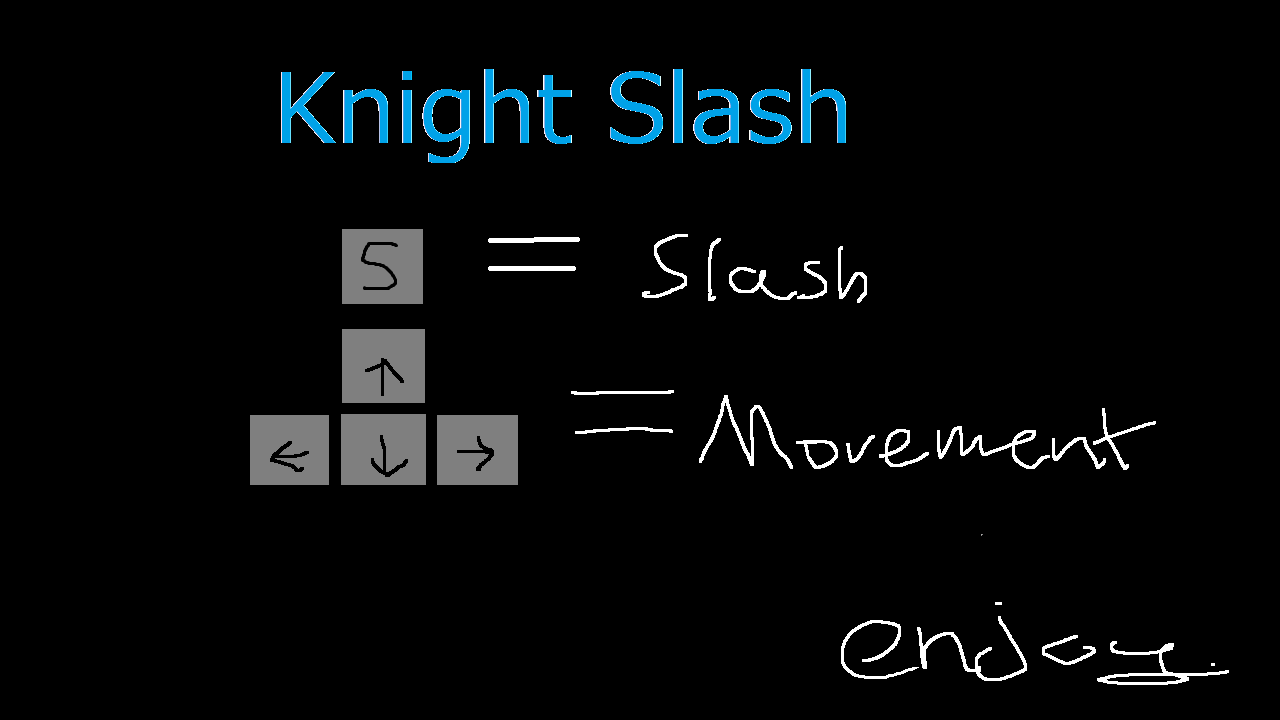 Knight Slash
S = Slash
↑
← ↓ → = Movement
enjoy.